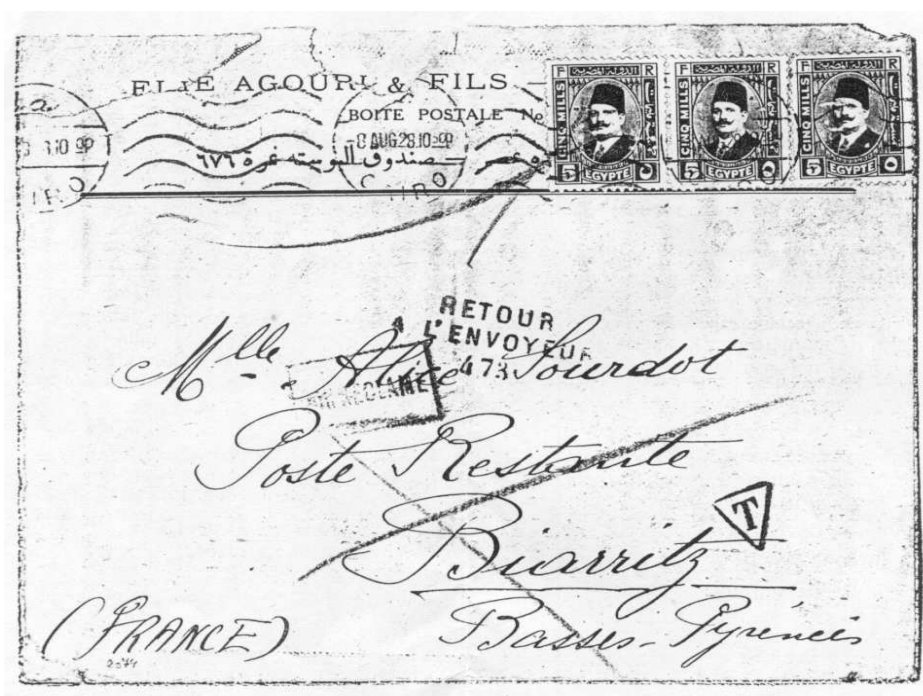 ELIE AGOURI & FILS
BOITE POSTALE No
صندوق البوسته نمرة ٦٧٦
8 AUG 28.10
CAIRO
CINQ MILLS
EGYPTE
5
٥
CINQ MILLS
EGYPTE
5
٥
CINQ MILLS
EGYPTE
5
٥
RETOUR
A L'ENVOYEUR
473
Mlle Alice Sourdot
Poste Restante
T
Biarritz
Basses-Pyrénées
(FRANCE)